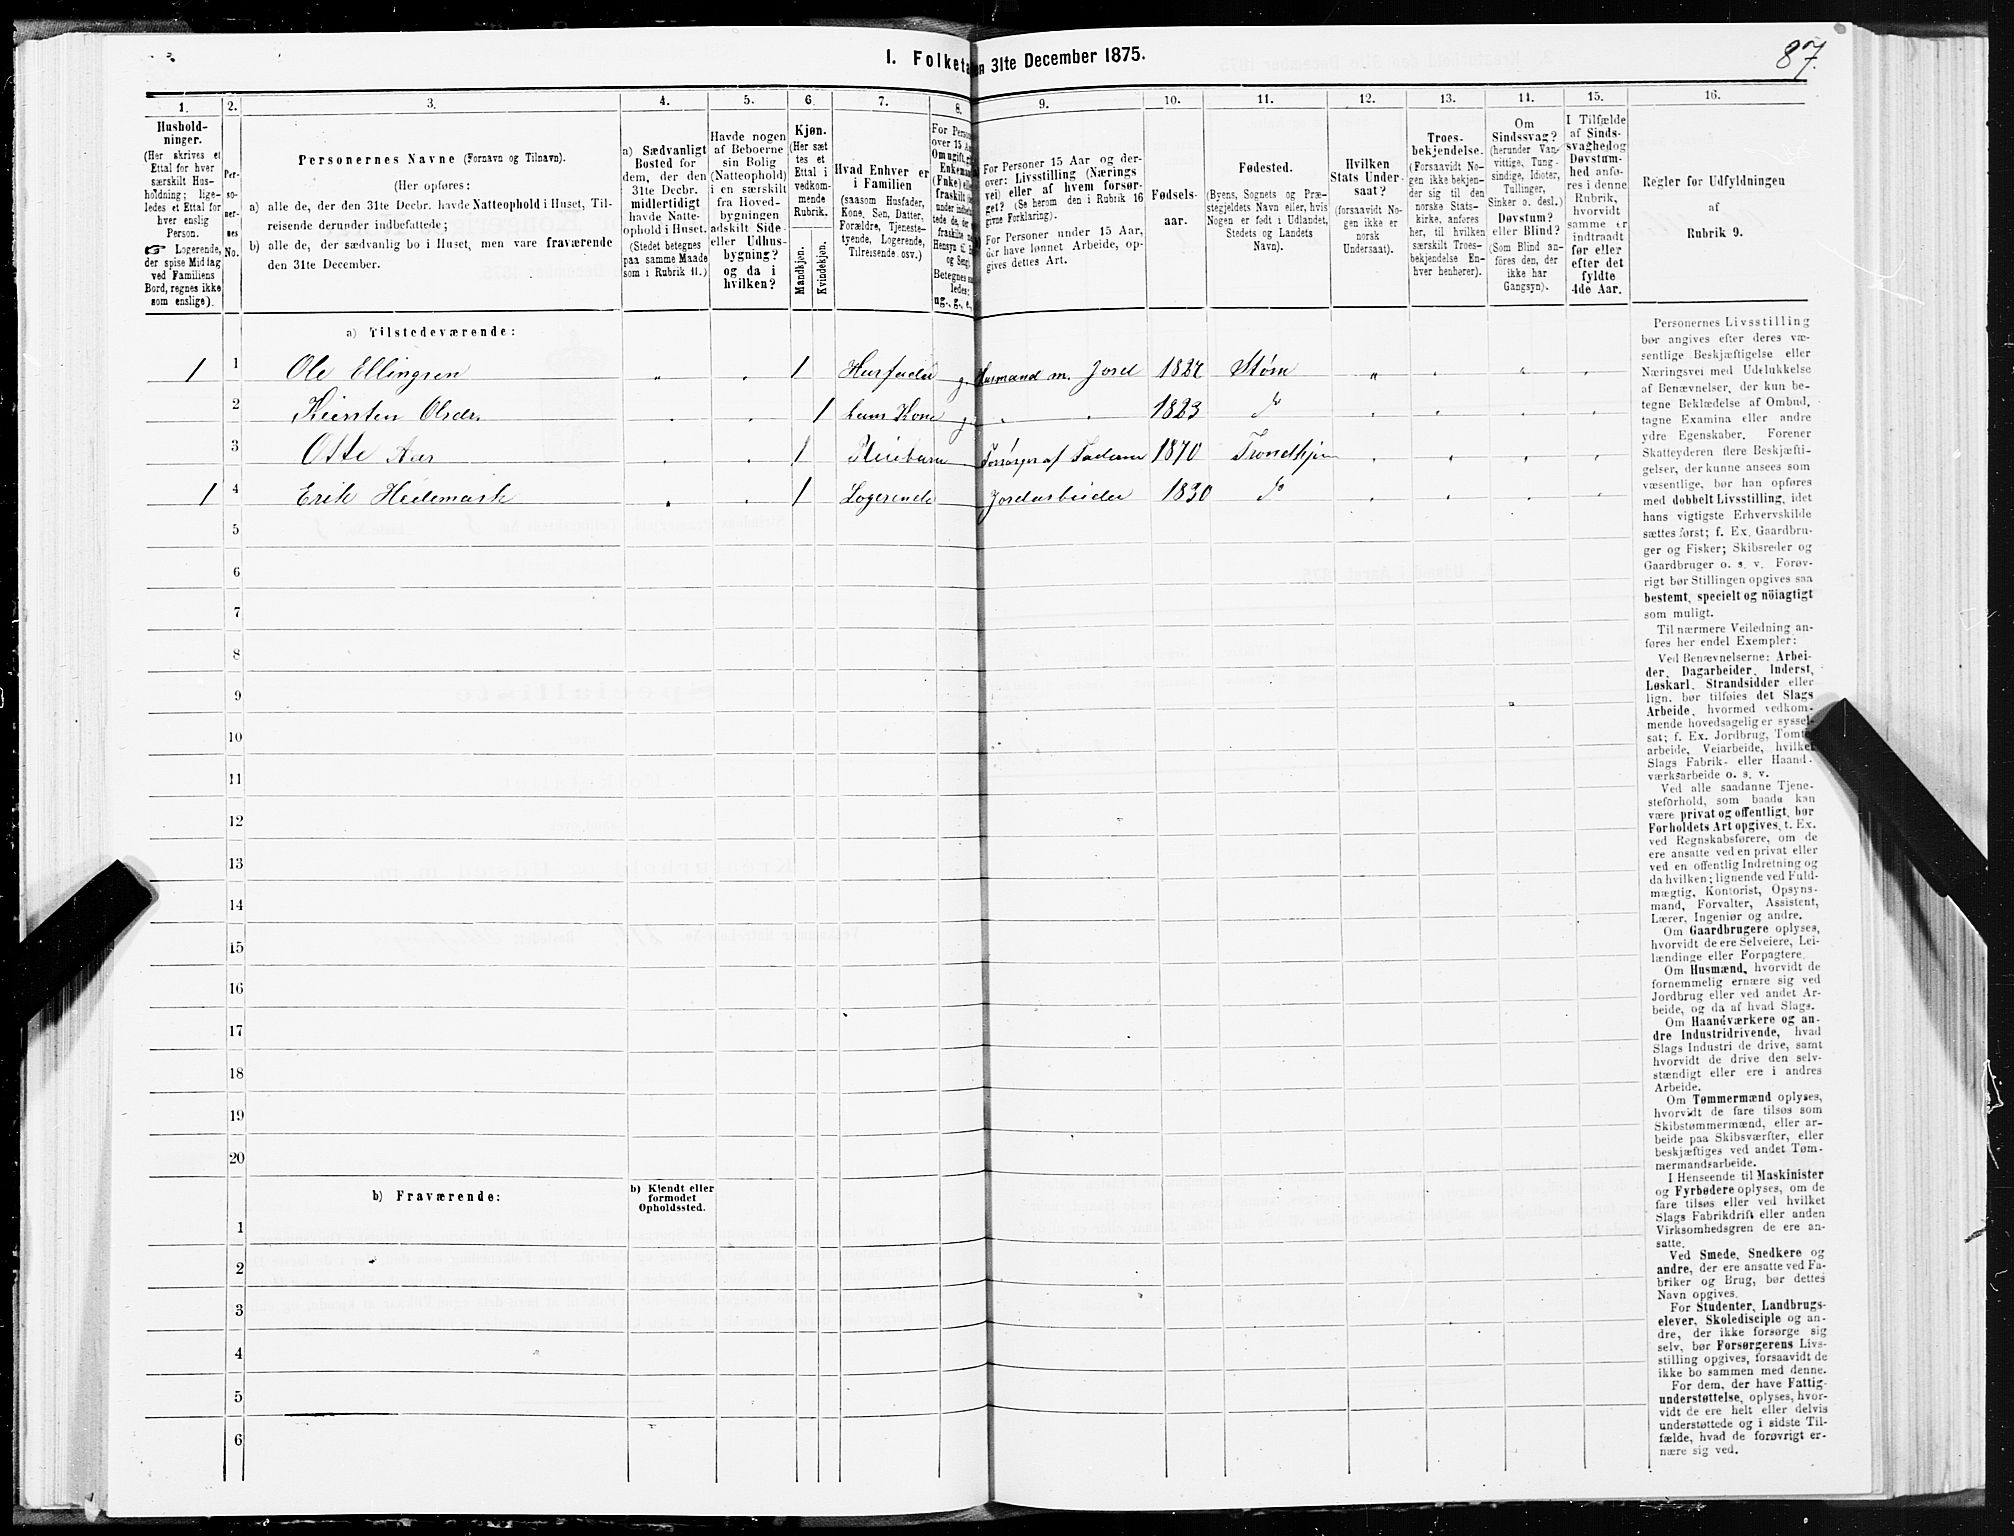 I. Folketa en 31te December 1875.
87.
1. 2. 3. 4. 5. 6. 7. 8. 9. 10. 11. 12. 13. 14. 15. 16.
Hushold-
ninger.
(Her skrives et
Ettal for hver
særskilt Hus-
holdning; lige-
ledes et Ettal for
hver enslig
Person.
☞ Logerende,
der spise Middag
ved Familiens
Bord, regnes ikke
som enslige).
Per-
so-
ner-
nes
No.
Personernes Navne (Fornavn og Tilnavn).
(Her opføres:
a) alle de, der den 31te Decbr. havde Natteophold i Huset, Til-
reisende derunder indbefattede;
b) alle de, der sædvanlig bo i Huset, men vare fraværende
den 31te December.
a) Sædvanligt
Bosted for
dem, der den
31te Decbr.
midlertidigt
havde Natte-
ophold i Huset.
(Stedet betegnes
paa samme Maade
som i Rubrik 11.)
Havde nogen
af Beboerne
sin Bolig
(Natteophold)
i en særskilt
fra Hoved-
bygningen
adskilt Side-
eller Udhus-
bygning?
og da i
hvilken?
Kjøn.
(Her sæt
tes et
Ettal i
vedkom-
mende
Rubrik.
Mandkjøn.
Kvindekjøn.
Hvad Enhver er
i Familien
(saasom Husfader,
Kone, Søn, Datter,
Forældre, Tjeneste-
tyende, Logerende,
Tilreisende osv.)
For Persone
over 15 Aar
Om ugift, gi
Enkemand
(Enke) elle
fraskilt
Hensyn til
og Seng).
Betegnes saa
ledes:
ug., g., e.,
For Personer 15 Aar og der-
over: Livsstilling (Nærings
vei) eller af hvem forsør-
get? (Se herom den i Rubrik 16
givne Forklaring).
For Personer under 15 Aar,
der have lønnet Arbeide, op-
gives dettes Art.
Fødsels-
aar.
Fødested.
(Byens, Sognets og Præ-
stegjeldets Navn eller, hvis
Nogen er født i Udlandet,
Stedets og Landets
Navn).
Hvilken
Stats Under-
saat?
(forsaavidt No-
gen ikke er
norsk
Undersaat).
Troes-
bekjendelse.
(Forsaavidt No-
gen ikke bekjen-
der sig til den
norske Stats-
kirke, anføres
her, til hvilken
særskilt Troes-
bekjendelse En-
hver henhører).
Om
Sindssvag?
(herunder Van-
vittige, Tung-
sindige, Idioter,
Tullinger,
Sinker o. desl.)
Døvstum?
eller Blind?
(Som Blind an-
føres den, der
ikke har
Gangsyn).
I Tilfælde
af Sinds-
svaghed og
Døvstum-
hed anfø-
res i denne
Rubrik,
hvorvidt
samme er
indtraadt
før eller
efter det
fyldte
4de Aar.
Regler for Udfyldningen
af
Rubrik 9.
a) Tilstedeværende:
1 1 Ole Ellingsen „ „ 1 Husfader g. Husmand m. Jord 1827 Støren „ „ „ „
2 Kirsten Olsdr. „ „ 1 hans Kone g. „ „ 1823 do „ „ „ „
3 Otte Aas „ „ 1 Pleiebarn Forsørges af Faderen 1870 Trondhjem „ „ „ „
1 4 Erik Hedemark „ „ 1 Logerende Jordarbeider 1830 do „ „ „ „
5
6
7
8
9
10
11
12
13
14
15
16
17
18
19
20
b) Fraværende:
b) Kjendt eller
formodet
Opholdssted.
1
2
3
4
5
6
Personernes Livsstilling
bør angives efter deres væ-
sentlige Beskjæftigelse eller
Næringsvei med Udelukkelse
af Benævnelser, der kun be-
tegne Beklædelse af Ombud,
tagne Examina eller andre
ydre Egenskaber. Forener
Skatteyderen flere Beskjæfti-
gelser, der kunne ansees som
væsentlige, bør han opføres
med dobbelt Livsstilling, idet
hans vigtigste Erhvervskilde
sættes først; f. Ex. Gaardbru-
ger og Fisker; Skibsreder og
Gaardbruger o. s. v. Forøv-
rigt bør Stillingen opgives saa
bestemt, specielt og nöiagtigt
som muligt.
Til nærmere Veiledning an-
føres her endel Exempler:
Ved Benævnelserne: Arbei-
der, Dagarbeider, Inderst,
Løskarl, Strandsidder eller
lign. bør tilføies det Slags
Arbeide, hvormed vedkom-
mende hovedsagelig er syssel-
sat; f. Ex. Jordbrug, Tomte-
arbeide, Veiarbeide, hvilket
Slags Fabrik- eller Haand-
værksarbeide o. s. v.
Ved alle saadanne Tjene-
steforhold, som baade kan
være privat og offentligt, bør
Forholdets Art opgives, t. Ex.
ved Regnskabsførere, om de
ere ansatte ved en privat eller
ved en offentlig Indretning og
da hvilken; lignende ved Fuld-
mægtig, Kontorist, Opsyns-
mand, Forvalter, Assistent,
Lærer, Ingeniør og andre.
Om Gaardbrugere oplyses,
hvorvidt de ere Selveiere, Lei-
lændinge eller Forpagtere.
Om Husmænd, hvorvidt de
fornemmelig ernære sig ved
Jordbrug eller ved andet Ar-
beide, og da af hvad Slags.
Om Haandværkere og an-
dre Industridrivende, hvad
Slags Industri de drive, samt
hvorvidt de drive den selv-
stændigt eller ere i andres
Arbeide.
Om Tømmermænd oplyses,
hvorvidt de fare tilsøs som
Skibstømmermænd, eller ar-
beide paa Skibsværfter, eller
beskjæftiges ved andet Tøm-
mermandsarbeide.
I Henseende til Maskinister
og Fyrbødere oplyses, om de
fare tilsøs eller ved hvilket
Slags Fabrikdrift eller anden
Virksomhedsgren de ere an-
satte.
Ved Smede, Snedkere og
andre, der ere ansatte ved Fa-
briker og Brug, bør dettes
Navn opgives.
For Studenter, Landbrugs-
elever, Skoledisciple og an-
dre, der ikke forsørge sig
selv, bør Forsørgerens Livs-
stilling opgives, forsaavidt de
ikke bo sammen med denne.
For dem, der have Fattig-
understøttelse, oplyses, hvor-
vidt de ere helt eller delvis
understøttede og i sidste Til-
fælde, hvad de forøvrigt er-
nære sig ved.